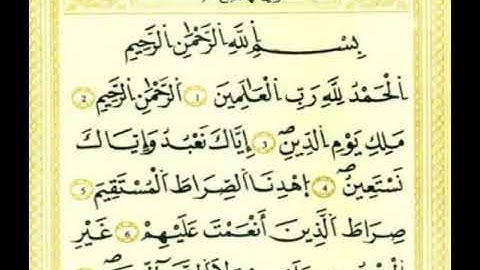 بِسْمِ اللَّهِ الرَّحْمَٰنِ الرَّحِيمِ
الْحَمْدُ لِلَّهِ رَبِّ الْعَٰلَمِينَ ١ الرَّحْمَٰنِ الرَّحِيمِ ٢
مَلِكِ يَوْمِ الدِّينِ ٣ إِيَّاكَ نَعْبُدُ وَإِيَّاكَ
نَسْتَعِينُ ٤ اِهْدِنَا الصِّرَاطَ الْمُسْتَقِيمَ ٥
صِرَاطَ الَّذِينَ أَنْعَمْتَ عَلَيْهِمْ ٦ غَيْرِ